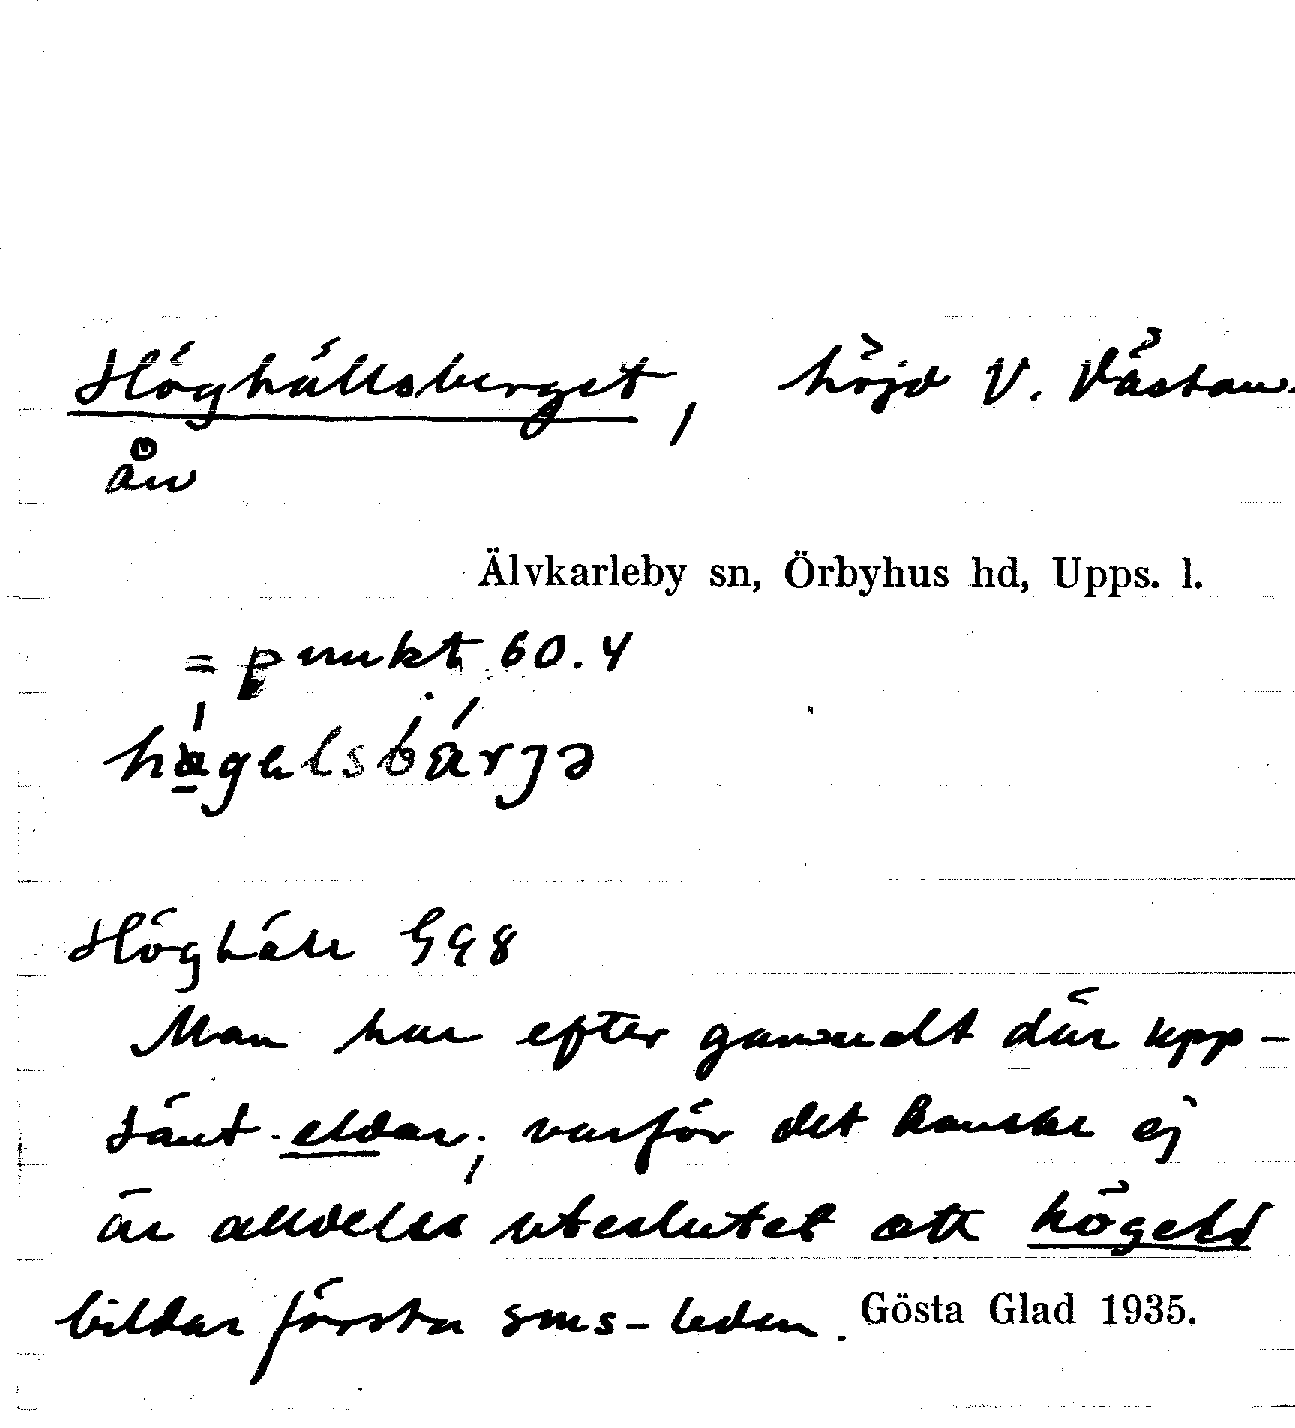 Höghällsberget, höjd V. Västan-
ån
Älvkarleby sn, Örbyhus hd, Upps. l.
= punkt 60.4
Höghäll
Man har efter gammalt där upp-
tänt eldar, varför det kanske ej
är alldeles uteslutet att högeld
bildar första sms-leden.
Gösta Glad 1935.